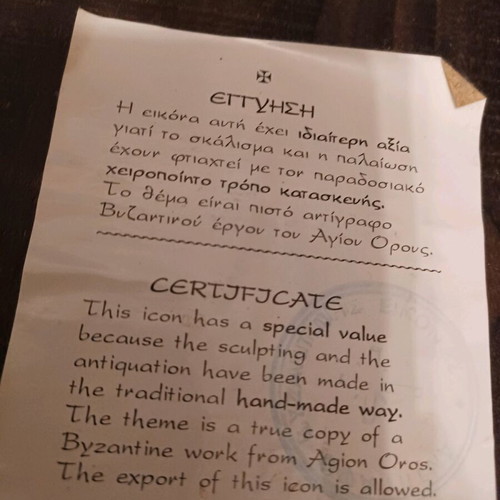 ΕΓΓΥΗΣΗ
Η εικόνα αυτή έχει ιδιαίτερη αξία
γιατί το σκάλισμα και η παλαίωση
έχουν φτιαχτεί με τον παραδοσιακό
χειροποίητο τρόπο κατασκευής.
Το θέμα είναι πιστό αντίγραφο
Βυζαντινού έργου του Αγίου Όρους.
CERTIFICATE
This icon has a special value
because the sculpting and the
antiquation have been made in
the traditional hand-made way.
The theme is a true copy of a
Byzantine work from Agion Oros.
The export of this icon is allowed.